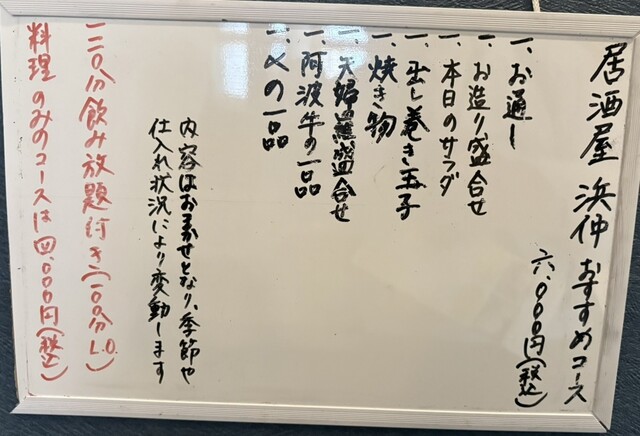 居酒屋 浜仲 おすすめコース
六、000円(税込)
一、お通し
一、お造り盛合せ
一、本日のサラダ
一、出し巻き玉子
一、焼き物
一、天婦羅盛合せ
一、阿波牛の一品
一、〆の一品
内容はおまかせとなり、季節や
仕入れ状況により変動します
一二0分飲み放題付き(一00分L.O.)
料理のみのコースは四、000円(税込)